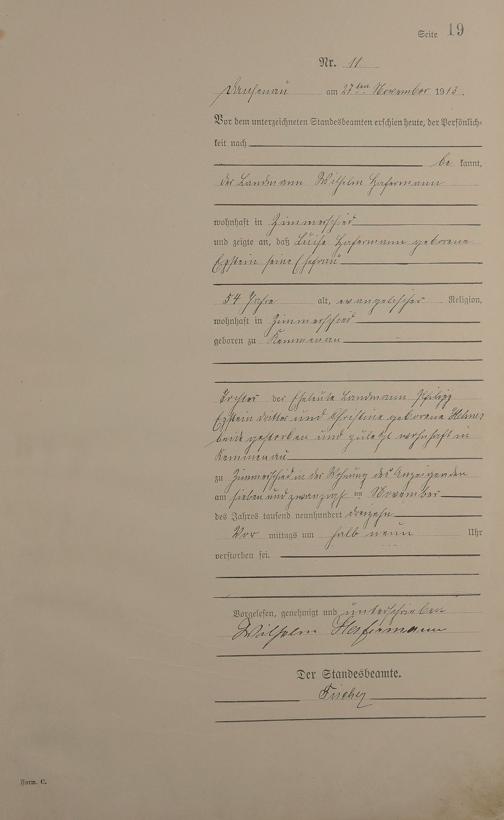 Seite 19
Nr. 11
Dausenau am 27ten November 1913.
Vor dem unterzeichneten Standesbeamten erschien heute, der Persönlich-
keit nach
be kannt,
der Landmann Wilhelm Hafermann
wohnhaft in Zimmerschied
und zeigte an, daß Luise Hafermann geborene
Eppstein seine Ehefrau
54 Jahre alt, evangelischer Religion,
wohnhaft in Zimmerschied
geboren zu Kemmenau
Tochter der Eheleute Landmann Philipp
Eppstein dritter und Christine geborene
beide gestorben und zuletzt wohnhaft in
Kemmenau
zu Zimmerschied in der Wohnung des Anzeigenden
am sieben und zwanzigsten November
des Jahres tausend neunhundert dreizehn
Vor mittags um halb neun Uhr
verstorben sei.
Vorgelesen, genehmigt und unterschrieben
Wilhelm Hafermann
Der Standesbeamte.
Form. C.